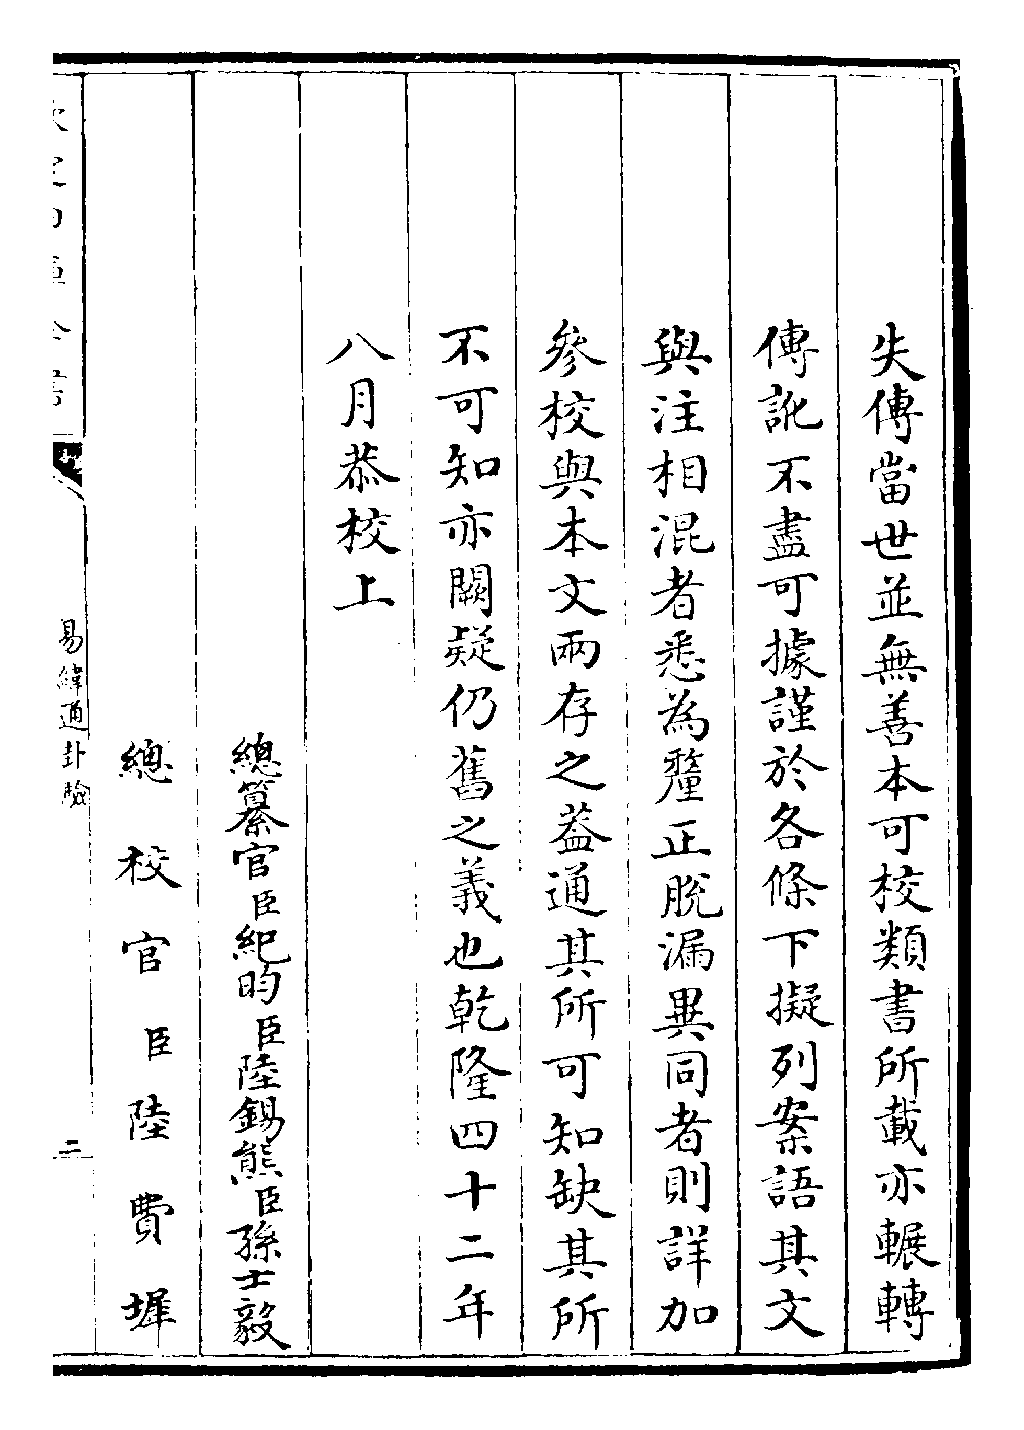 失傳當世並無善本可校類書所載亦輾轉
傳訛不盡可據謹於各條下擬列案語其文
與注相混者悉為釐正脫漏異同者則詳加
參校與本文兩存之葢通其所可知缺其所
不可知亦闕疑仍舊之義也乾隆四十二年
八月恭校上
總纂官臣紀昀臣陸錫熊臣孫士毅
總校官臣陸費墀
易緯通卦驗
二